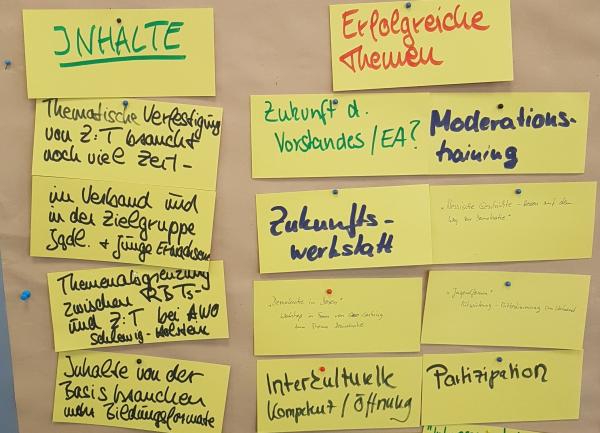 INHALTE
Thematische Verfestigung
von Z:T braucht
noch viel Zeit -
im Verband und
in der Zielgruppe
Jgdl. + junge Erwachsene
Themenabgrenzung
zwischen RBTs-
und Z:T bei AWO
Schleswig-Holstein
Inhalte von der
Basis brauchen
mehr Bildungsformate
Erfolgreiche
Themen
Zukunft d.
Vorstandes/EA?
Moderations-
training
Zukunfts-
werkstatt
"Hessische Geschichte - Hessen auf dem
Weg zur Demokratie"
"Demokratie in Hessen"
zum Thema Demokratie
"Jugendforum"
Interkulturelle
Kompetenz/Öffnung
Partizipation